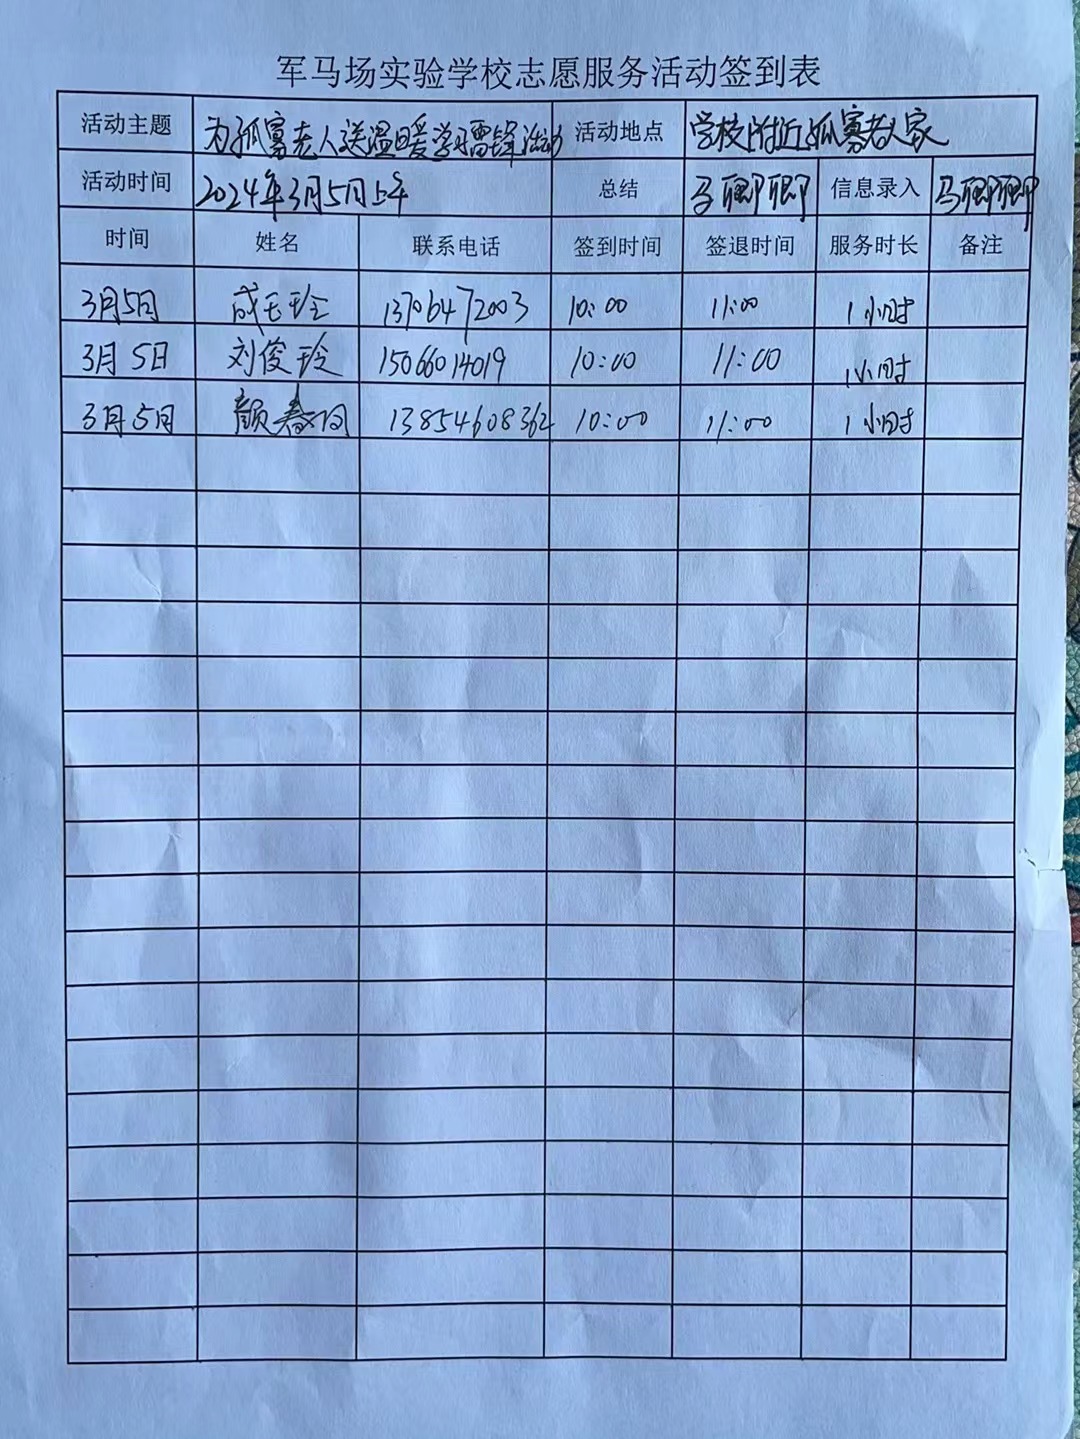 军马场实验学校志愿服务活动签到表
活动主题 为孤寡老人送温暖学习雷锋活动 活动地点 学校附近孤寡老人家
活动时间 2024年3月5日上午 总结 马聊聊 信息录入 马聊聊
时间 姓名 联系电话 签到时间 签退时间 服务时长 备注
3月5日 成玉玲 13706472003 10:00 11:00 1小时
3月5日 刘俊玲 15066014019 10:00 11:00 1小时
3月5日 颜春 13854608362 10:00 11:00 1小时